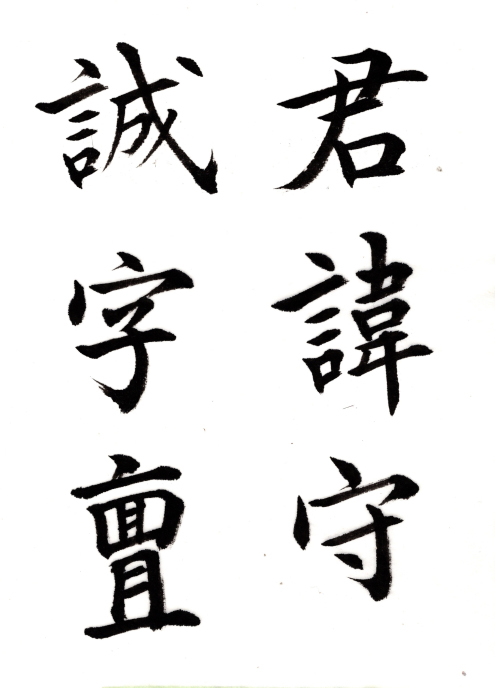 君諱守
誠字亶